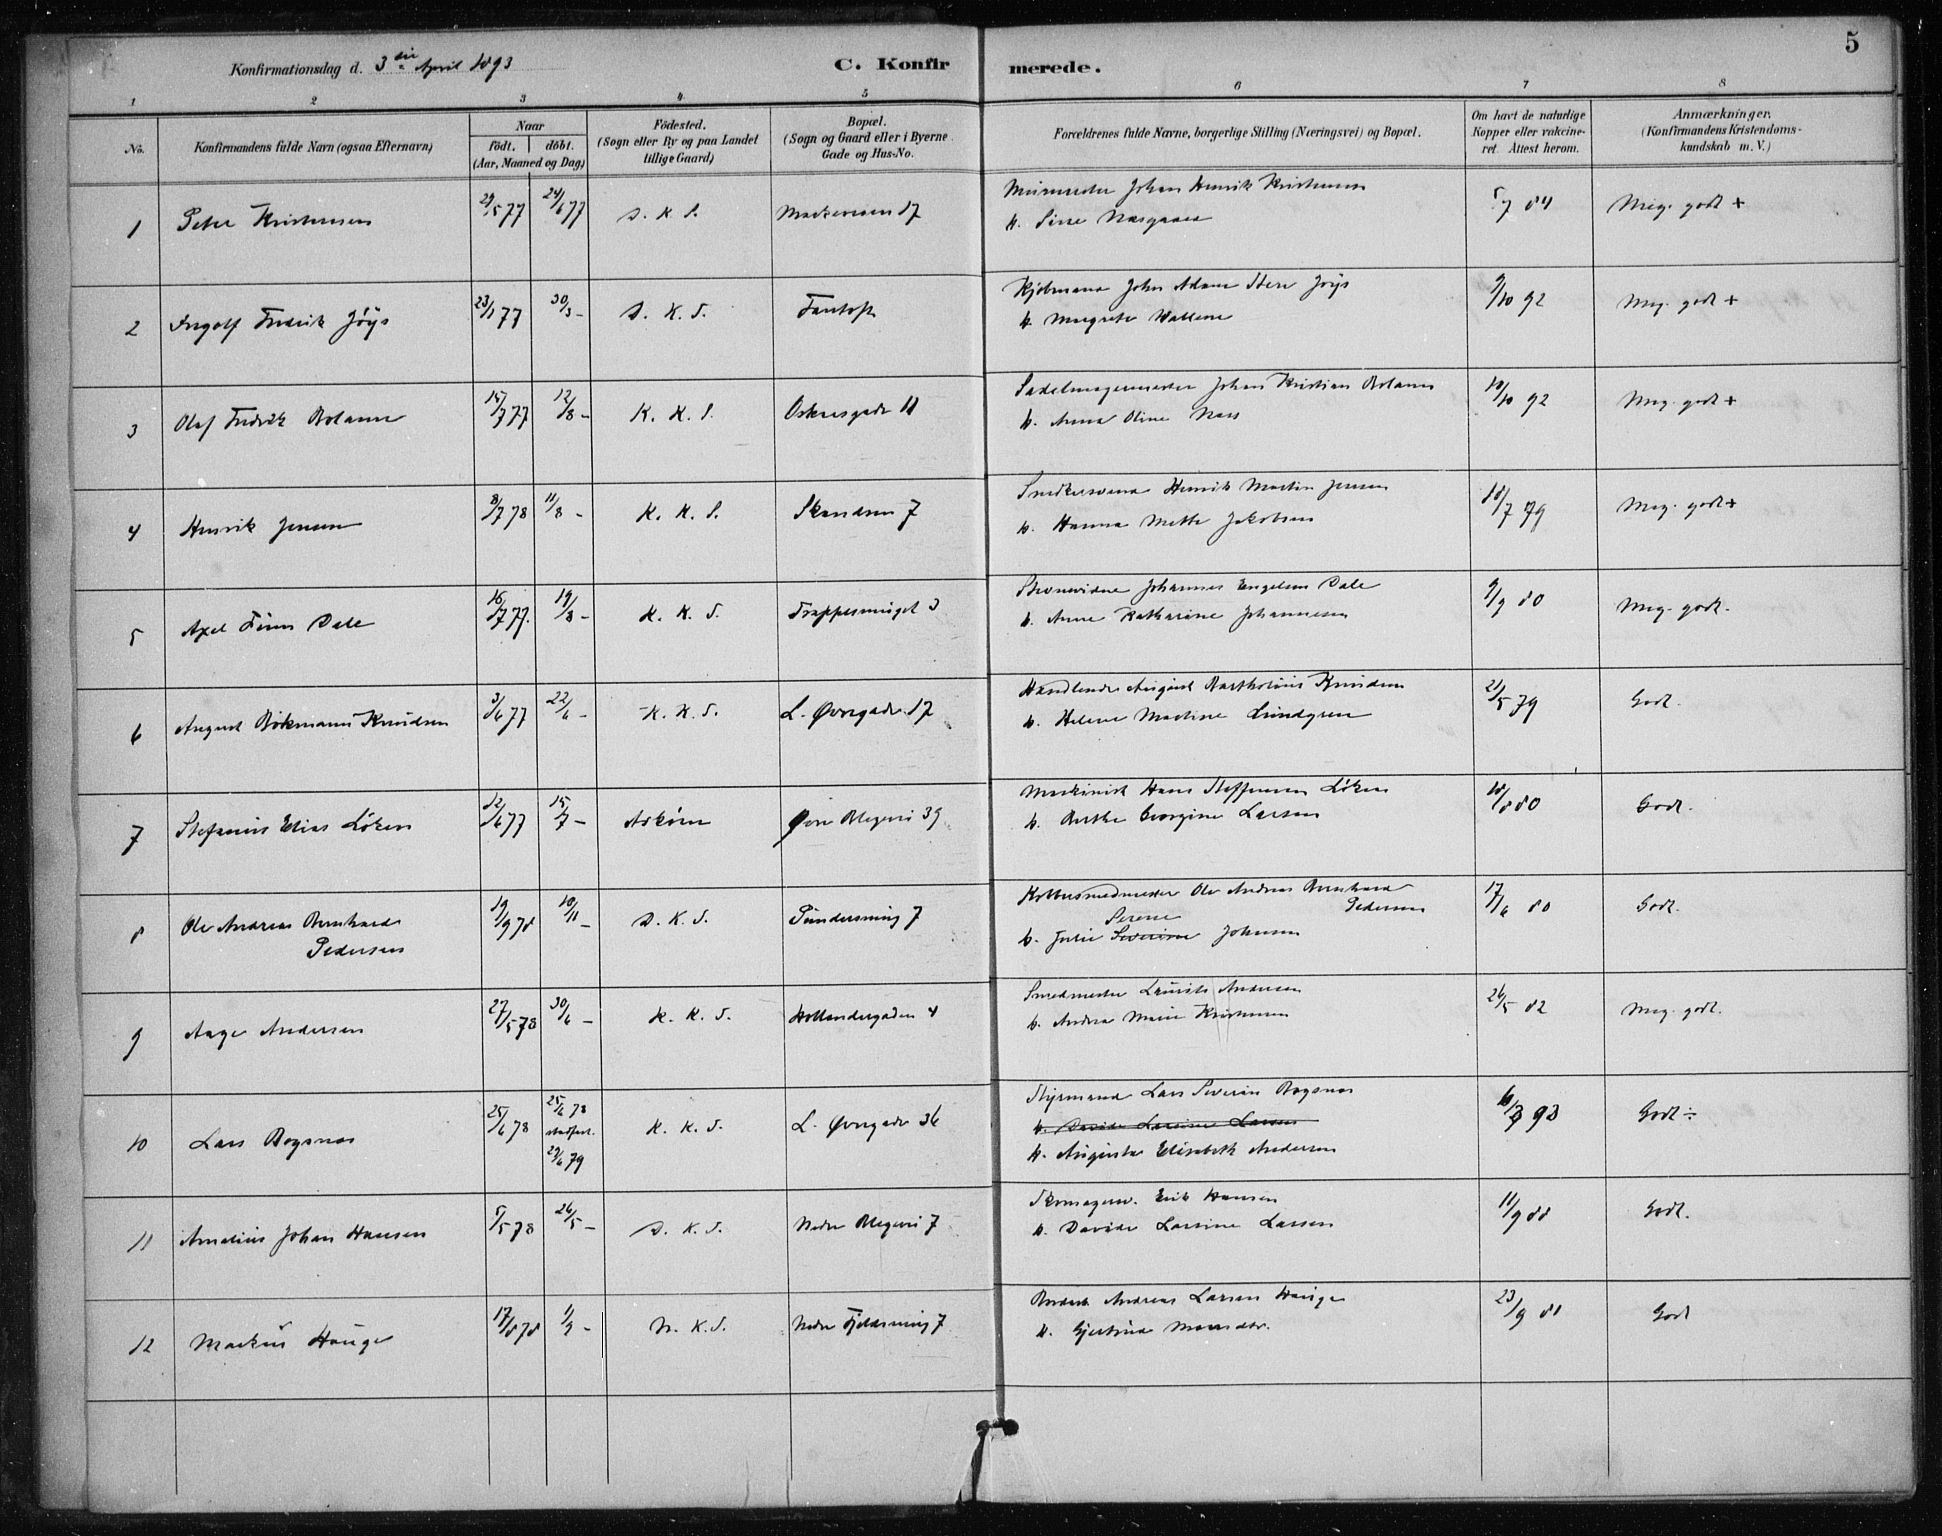 5
Konfirmationsdag d. 3die April 1893
C. Konfirmerede.
1 2 3 4 5 6 7 8
No.
Konfirmandens fulde Navn (ogsaa Efternavn)
Naar
födt. döbt.
(Aar, Maaned og Dag)
Födested.
(Sogn eller By og paa Landet
tillige Gaard)
Bopæl.
(Sogn og Gaard eller i Byerne
Gade og Hus-No.
Forældrenes fulde Navne, borgerlige Stilling (Næringsvei) og Bopæl.
Om havt de naturlige
Kopper eller vakcine-
ret. Attest herom.
Anmærkninger.
(Konfirmandens Kristendoms-
kundskab m. V.)
1 Peter Kristensen 29/5 77 24/6 77 D. K. S. 17 Murmester Johan Henrik Kristensen 84 Meg. godt +
H.
2 Ingolf Fredrik Jöys 23/1 77 30/3 - D. K. S. Fantoft Kjöbmand John Adam Jöys 9/10 92 Meg. godt +
H. Margrete
3 Olaf Fredrik 15/7 77 12/8 - K. K. S. Oskarsgade 11 Sadelmagermester Johan Kristian 10/10 92 Meg. godt +
H. Anna Oline
4 Henrik Jensen 8/7 78 11/8 - K. K. S. Skandsen 7 Snedkersvend Henrik Martin Jensen 18/7 79 Meg. godt +
H. Hanna Mette Jakobsen
5 Axel Finn Dale 16/7 77. 19/8 - K. K. S. Trappesmuget 3 Johannes Engelsen Dale 9/9 80 Meg. godt.
H. Anne Katharine Johannesen
6 August Bökmann Knudsen 3/6 77 22/6 - K. K. S. L. Øvregade 17 Handlende August Bartholius Knudsen 21/5 79 Godt.
H. Helene Martine Lundgreen
7 Stefanius Elias Löken 12/6 77 15/7 - Asköen Øvre Blegevei 39 Maskinist Hans Steffensen Löken 10/8 80 Godt.
H. Berthe Georgine Larsen
8 Ole Andreas Bernhard 19/9 78 10/11 - D. K. S. Söndersmug 7 Kobbersmedmester Ole Andreas Bernhard 17/6 80 Godt.
Pedersen Pedersen
Serene
H. Julie Severine Johnsen
9 Aage Andersen 27/5 78 30/6 - K. K. S. Hollendergaden 4 Smedmester Laurits Andersen 26/5 82 Meg. godt.
H. Andrea Marie Kristensen
10 Lars Bogsnes 25/6 78 25/6 78 K. K. S. L. Øvregade 36 Styrmand Lars Severin Bogsnes 93 Godt ÷
stadfest.
29/6 79
H. Davida Larsine Larsen
H. Augusta Elisabeth Andersen
11 Amelius Johan Hansen 5/5 78 26/5 - D. K. S. Nedre Blegevei 7 Skomagersv. Erik Hansen 11/9 88 Godt.
H. Davida Larsine Larsen
12 Markus Hauge 17/8 78 1/9 - N. K. S. Nedre Fjeldsmug 7 Andreas Larsen Hauge 23/9 81 Godt
H. Gjertrud Monsdtr.